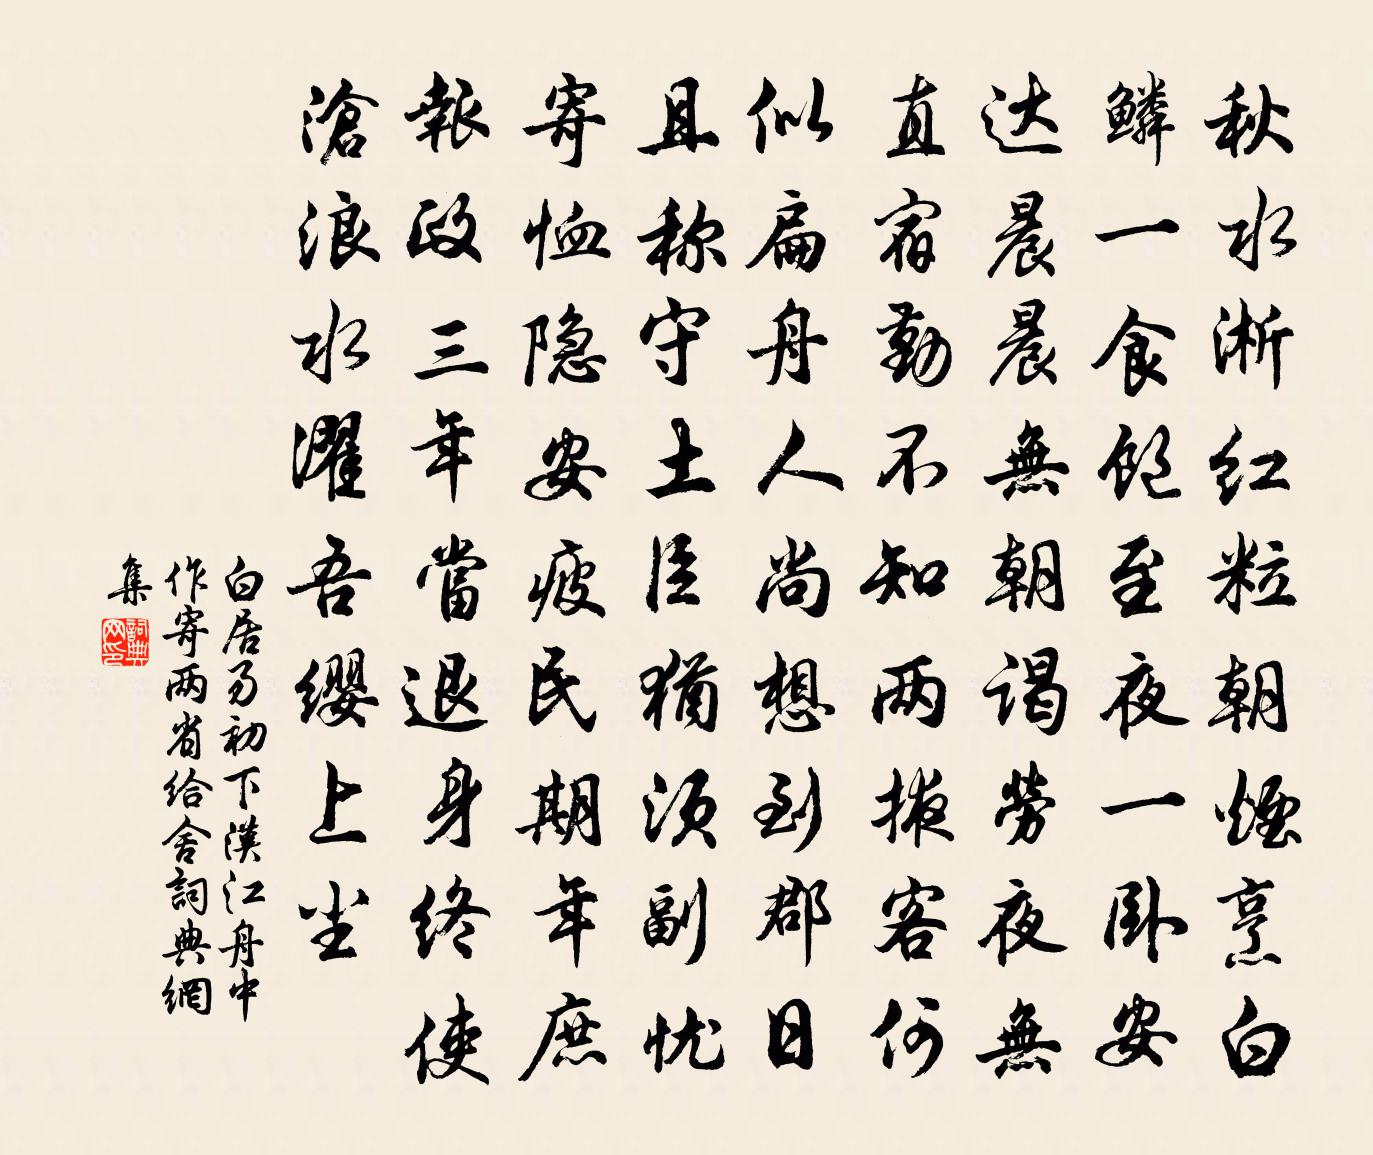 秋水淅红粒朝煙烹白
鳞一食飽至夜一卧安
达晨晨無朝谒勞夜無
直宿勤不知两掖客何
似扁舟人尚想到郡日
且称守土臣猶须副忧
寄恤隐安疲民期年庶
報政三年當退身终使
滄浪水濯吾缨上尘
白居易初下漢江舟中
作寄两省给舍詞典網
集
詞典网印